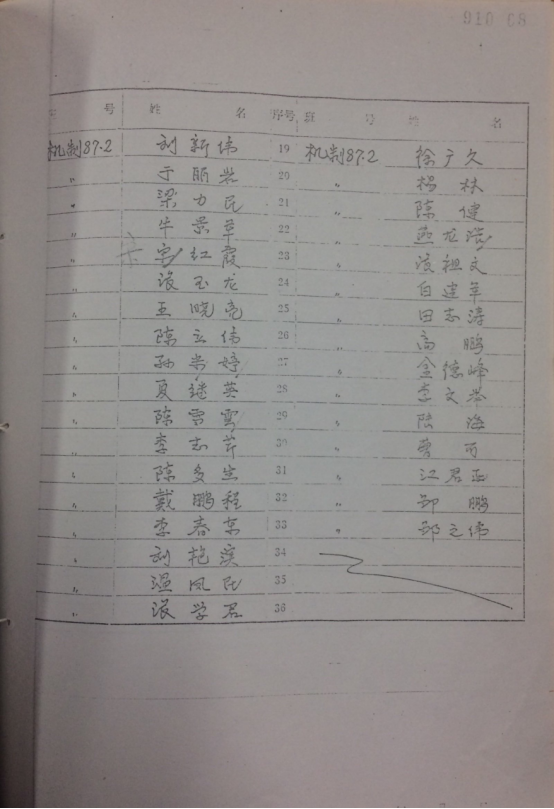 910 08
号 姓 名 序号 班 号 姓 名
机制87.2 刘新伟 19 机制87.2 徐广久
〃 于丽岩 20 〃 杨林
〃 梁力民 21 〃 陈健
〃 牛景华 22 〃 燕龙浩
〃 宋红霞 23 〃 祖文
〃 张玉龙 24 〃 白建华
〃 王晓亮 25 〃 田志涛
〃 陈立伟 26 〃 高鹏
〃 孙崇婷 27 〃 金德峰
〃 夏继英 28 〃 李文举
〃 陈雪 29 〃 陆海
〃 李志芹 30 〃
〃 陈多生 31 〃 江君
〃 戴鹏程 32 〃 鹏
〃 李春东 33 〃 之伟
〃 刘艳 34
〃 温凤民 35
〃 张学君 36